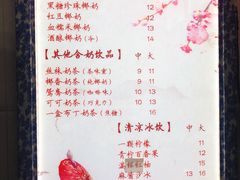 黑糖珍珠椰奶 12
红豆椰奶 12
血糯米椰奶 12
酒酿椰奶(冷) 14
【其他含奶饮品】 中 大
丝袜奶茶(茶味重) 9 11
椰香奶茶(椰奶味) 9 11
鸳鸯奶茶(咖啡味) 11 13
可可奶茶(巧克力) 11 13
一盒布丁奶茶(焦糖) 16
【清凉冰饮】 中 大
一颗柠檬 11
青柠百香果 12
柚 12
冰 12